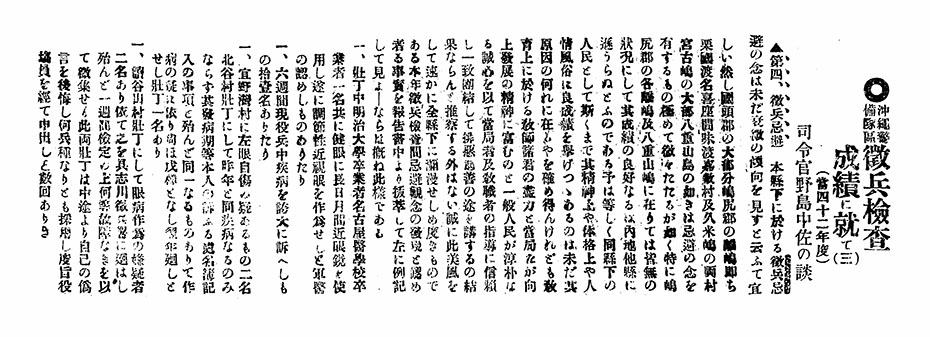 沖縄警備隊區
徴兵檢査
成績に就て(三)
(當四十二年度)
司令官野島中佐の談
▲第四、徴兵忌避 本縣下に於ける徴兵忌
避の念は未だ衰微の傾向を見すと云ふて宜
しい然し國頭郡の大部分嶋尻郡の離嶋即ち
粟國渡名喜座間味渡嘉敷村及久米嶋の両村
宮古嶋の大部八重山島の如きは忌避の念を
有するもの極めて微々たるものが如く特に嶋
尻郡の各離嶋及八重山嶋に在りては皆無の
狀況にして其成績の良好なるは内地他縣に
讓うらぬとふのである予は等しく同縣下の
人民として斯くまで其精神上や体格上や人
情風俗に良成績を擧げつゝあるのは未だ其
原因の何れに在るやを確め得んけれども敎
育上に於ける敎師諸君の盡力と當局者が向
上發展の精神に富むのと一般人民が淳朴な
る誠心を以て當局者及敎職者の指導に信頼
し一致團結して擧惡爲善の途を講するの結
果ならんと推察する外はない誠に此美風を
して遠かに全縣下に瀰漫せしめ度きもので
ある本年徴兵檢査間忌避觀念の發現と認め
者る事實を報告書中より抜萃して左に例記
して見よーならは概ね此樣である
一、壯丁中明治大學卒業者名古屋醫學校卒
業者一名共に健眼に長日月間近眼鏡を使
用し途に關節性近視眼を作爲せし史軍醫
の認めたり
一、六週間現役兵中疾病を誇大に訴へしも
の拾壹名ありたり
一、宜野灣村に左眼自傷を疑ふるもの二名
北谷村壯丁にして昨年と同疾病なるのみ
ならす其發病期等本人の
入の事項と殆んど同一なるものあり作
病の疑に依り尚ほ戊種となし翌年廻しと
せし壯丁一名あり
一、讀谷山村壯丁にして眼病作爲の嫌疑者
二名あり依て之を具志川 に廻はし
殆んど一週間檢定の上何等故障なきを以
て徴集せる此両壯丁は中途より自己の僞
言を後悔し何兵種なりとも採用し度旨役
塲員を經て申出し と數回ありき